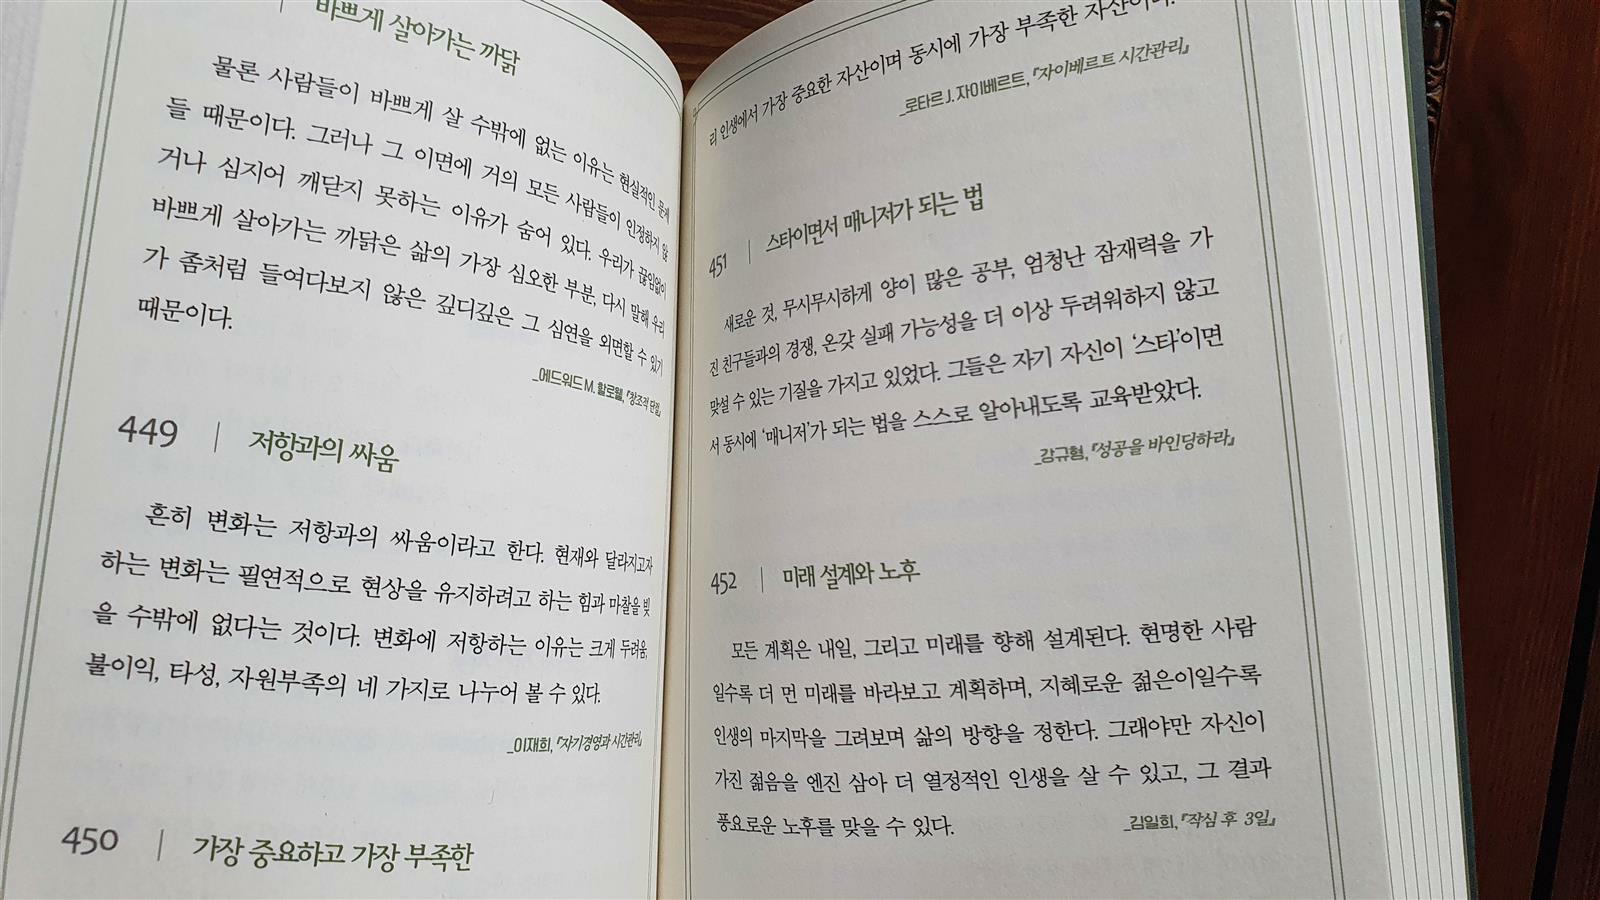 바쁘게 살아가는 까닭
물론 사람들이 바쁘게 살 수밖에 없는 이유는 현실적인 문제
들 때문이다. 그러나 그 이면에 거의 모든 사람들이 인정하지 않
거나 심지어 깨닫지 못하는 이유가 숨어 있다. 우리가 끊임없이
바쁘게 살아가는 까닭은 삶의 가장 심오한 부분, 다시 말해 우리
가 좀처럼 들여다보지 않은 깊디깊은 그 심연을 외면할 수 있기
때문이다.
_에드워드 M. 할로웰, 『창조적 단절』
449 | 저항과의 싸움
흔히 변화는 저항과의 싸움이라고 한다. 현재와 달라지고자
하는 변화는 필연적으로 현상을 유지하려고 하는 힘과 마찰을 빚
을 수밖에 없다는 것이다. 변화에 저항하는 이유는 크게 두려움,
불이익, 타성, 자원부족의 네 가지로 나누어 볼 수 있다.
_이재희, 『자기경영과 시간관리』
450 | 가장 중요하고 가장 부족한
리 인생에서 가장 중요한 자산이며 동시에 가장 부족한 자산이다.
_로타르 J. 자이베르트, 『자이베르트 시간관리』
451 | 스타이면서 매니저가 되는 법
새로운 것, 무시무시하게 양이 많은 공부, 엄청난 잠재력을 가
진 친구들과의 경쟁, 온갖 실패 가능성을 더 이상 두려워하지 않고
맞설 수 있는 기질을 가지고 있었다. 그들은 자기 자신이 ‘스타’이면
서 동시에 ‘매니저’가 되는 법을 스스로 알아내도록 교육받았다.
_강규형, 『성공을 바인딩하라』
452 | 미래 설계와 노후
모든 계획은 내일, 그리고 미래를 향해 설계된다. 현명한 사람
일수록 더 먼 미래를 바라보고 계획하며, 지혜로운 젊은이일수록
인생의 마지막을 그려보며 삶의 방향을 정한다. 그래야만 자신이
가진 젊음을 엔진 삼아 더 열정적인 인생을 살 수 있고, 그 결과
풍요로운 노후를 맞을 수 있다.
_김일희, 『작심 후 3일』